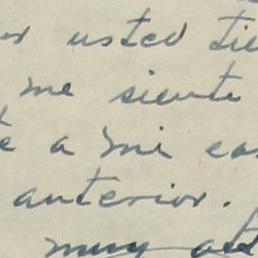 or usted tie
me siente
e a mi ca
anterior.
muy att